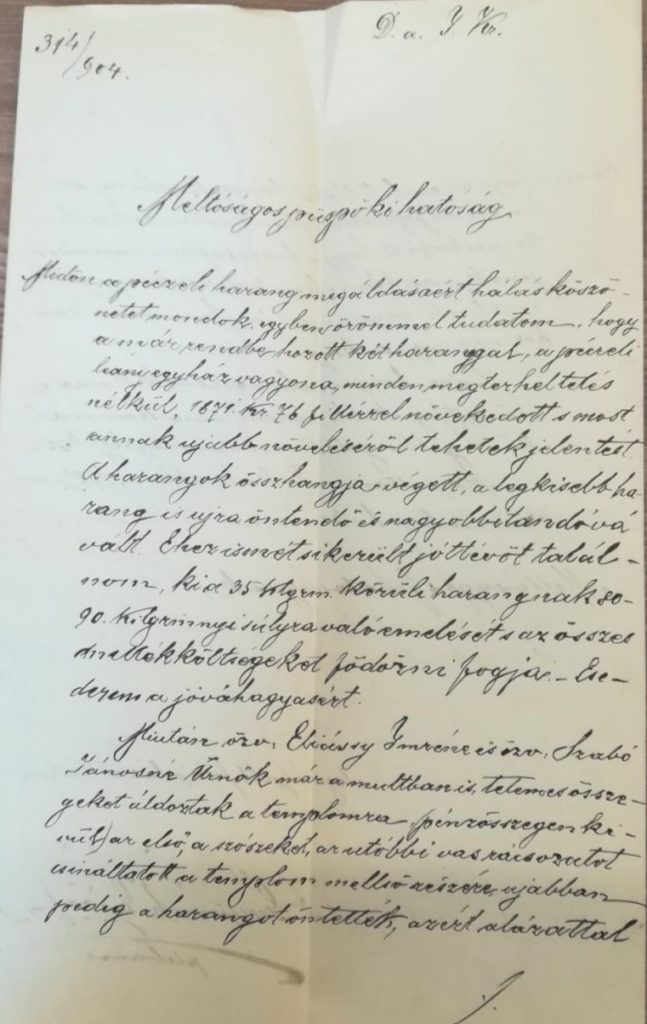 314/904.
D. a. J. Kr.
Méltóságos püspöki hatóság
Midőn a péczeli harang megáldásáért hálás köszö-
netet mondok, egyben örömmel tudatom, hogy
a már rendbe hozott két haranggal, a péczeli
leányegyház vagyona, minden megterheltetés
nélkül, 1871. Kr. 76 fillérrel növekedett s most
annak ujabb növeléséről tehetek jelentést.
A harangok összhangja végett, a legkisebb ha-
rang is ujra öntendő és nagyobbitandóvá
vált. Ehez ismét sikerült jóttevőt talál-
nom, ki a 35 klgrm. körüli harangnak 80-
90. kilgrmnyi súlyra való emelését s az összes
mellékköltségeket födözni fogja. - Ese-
dezem a jóváhagyásért.
Miután özv. Imréné és özv. Szabó
Jánosné Úrnők már a multban is, tetemes össze-
geket áldoztak a templomra (pénzösszegen ki-
vül) az első, a szószéket, az utóbbi vas rácsozatot
csináltatott a templom mellső részére, ujabban
pedig a harangot öntették, azért alázattal